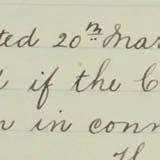 ted 20th Mar
d if the C
n in conn